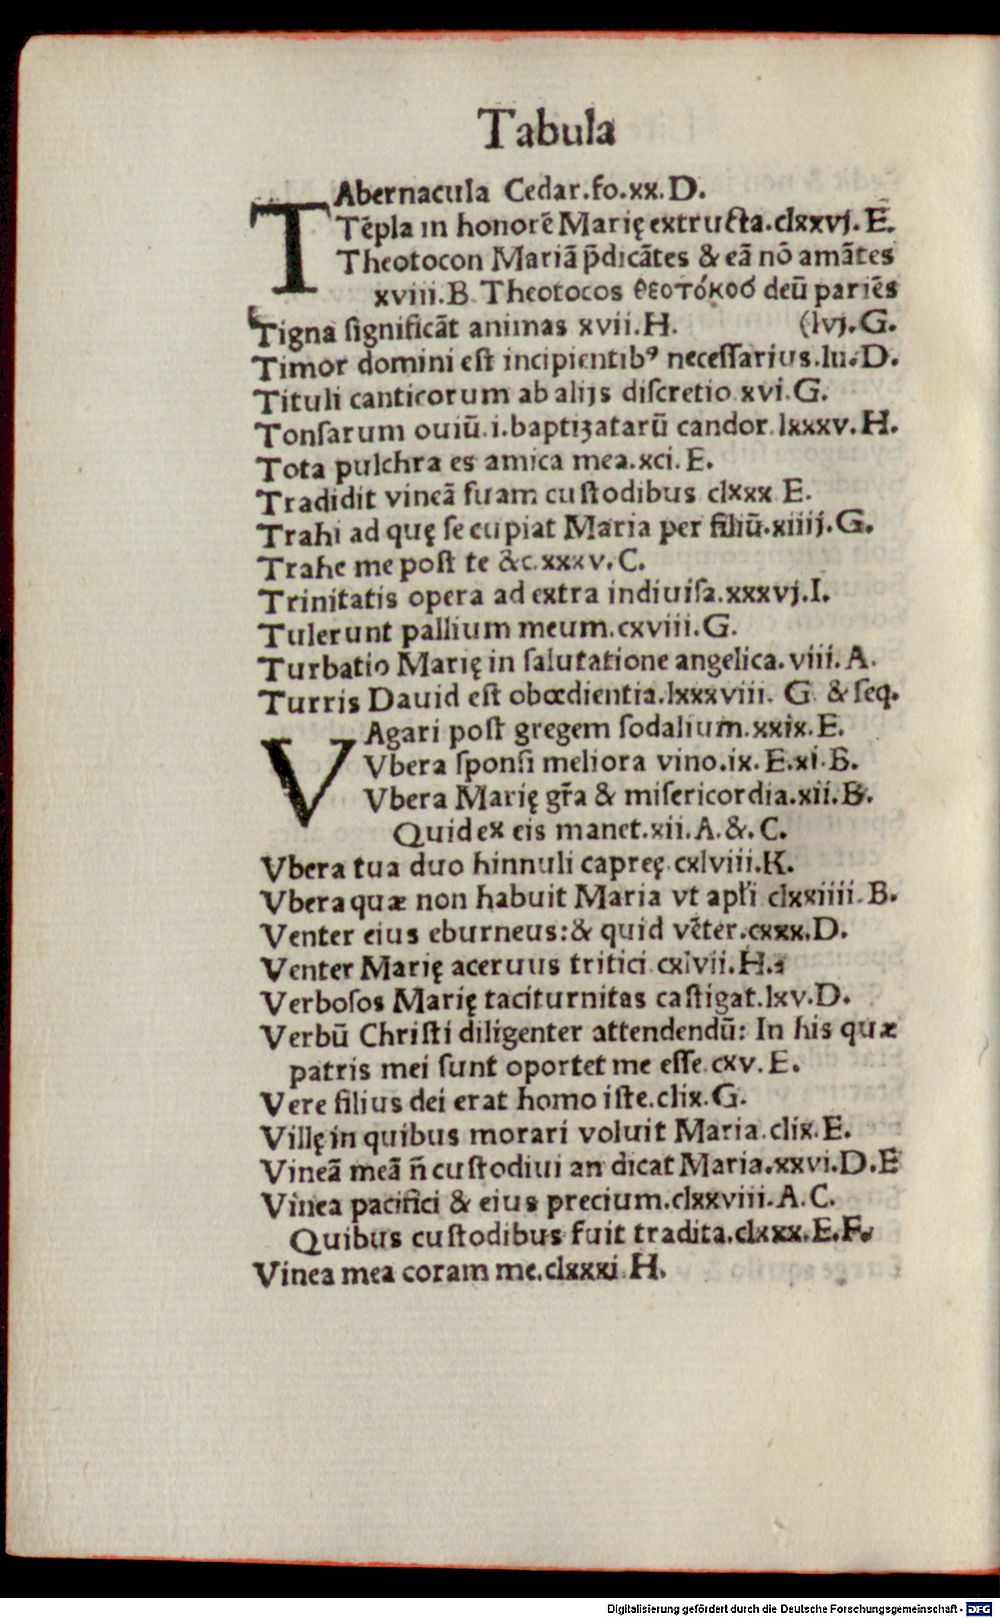 Tabula
TAbernacula Cedar.fo.xx.D.
Tēpla in honorē Marię extructa.clxxvj.E.
Theotocon Mariā p̄dicātes & eā nō amātes
xviii.B. Theotocos θεοτόκοσ deū pariēs
Tigna ſignificāt animas xvii.H. (lvj.G.
Timor domini eſt incipientibꝰ neceſſarius.lii.D.
Tituli canticorum ab alijs diſcretio xvi.G.
Tonſarum ouiū.i.baptiȝatarū candor.lxxxv.H.
Tota pulchra es amica mea.xci.E.
Tradidit vineā ſuam cuſtodibus clxxx E.
Trahi ad quę ſe cupiat Maria per filiū.xiiij.G.
Trahe me poſt te &c.xxxv.C.
Trinitatis opera ad extra indiuiſa.xxxvj.I.
Tulerunt pallium meum.cxviii.G.
Turbatio Marię in ſalutatione angelica.viii.A.
Turris Dauid eſt obœdientia.lxxxviii. G & ſeq.
VAgari poſt gregem ſodalium.xxix.E.
Vbera ſponſi meliora vino.ix.E.xi.B.
Vbera Marię gr̄a & miſericordia.xii.B.
Quid ex eis manet.xii.A.&.C.
Vbera tua duo hinnuli capreę.cxlviii.K.
Vbera quæ non habuit Maria vt apłi clxxiiii.B.
Venter eius eburneus:& quid vēter.cxxx.D.
Venter Marię aceruus tritici cxlvii.H.
Verboſos Marię taciturnitas caſtigat.lxv.D.
Verbū Chriſti diligenter attendendū: In his quæ
patris mei ſunt oportet me eſſe.cxv.E.
Vere filius dei erat homo iſte.clix.G.
Villę in quibus morari voluit Maria.clix.E.
Vineā meā n̄ cuſtodiui an dicat Maria.xxvi.D.E
Vinea pacifici & eius precium.clxxviii.A.C.
Quibus cuſtodibus fuit tradita.clxxx.E.F.
Vinea mea coram me.clxxxi.H.
Digitalisierung gefördert durch die Deutsche Forschungsgemeinschaft - DFG